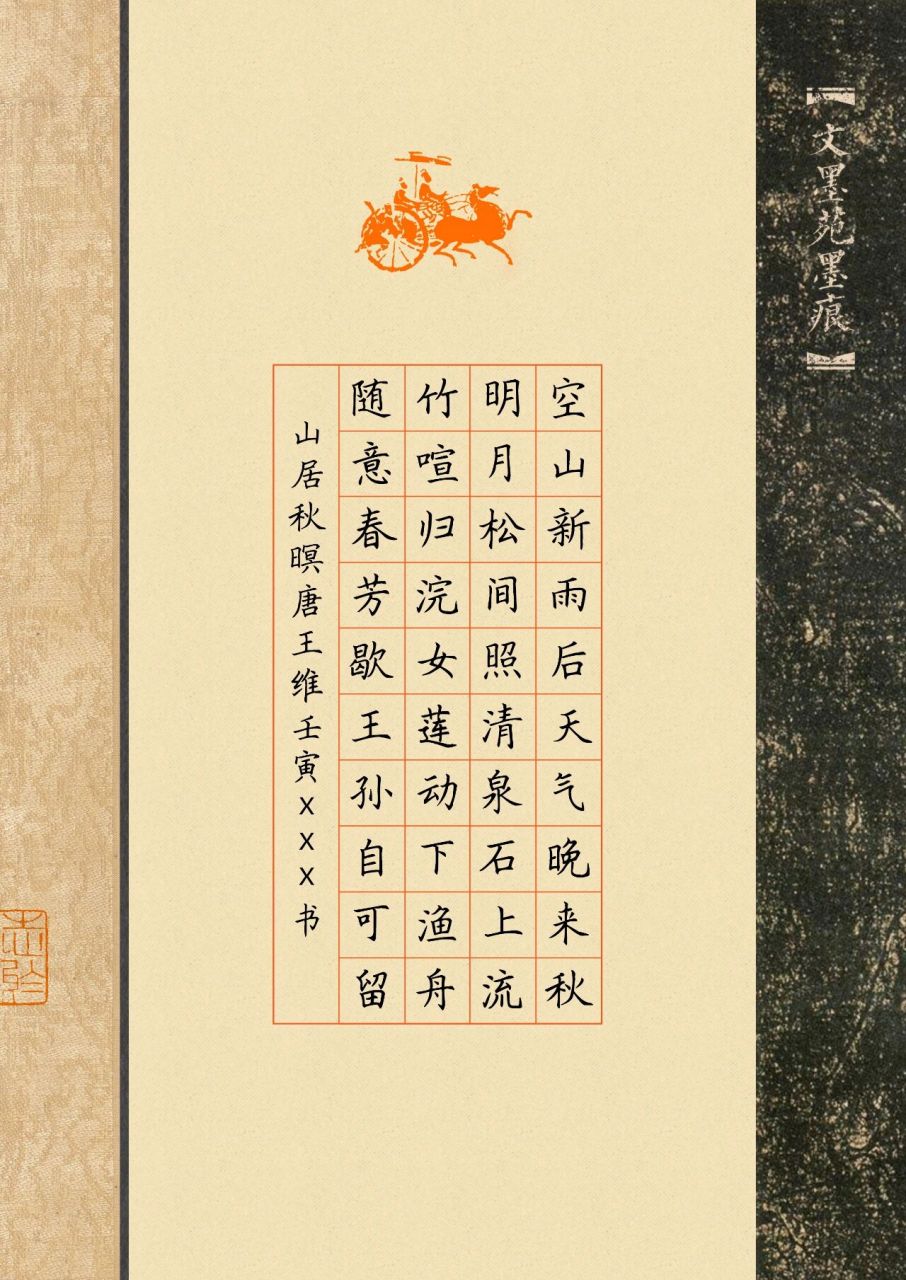 【文墨苑墨痕】
空山新雨后天气晚来秋
明月松间照清泉石上流
竹喧归浣女莲动下渔舟
随意春芳歇王孙自可留
山居秋暝唐王维壬寅XXX书